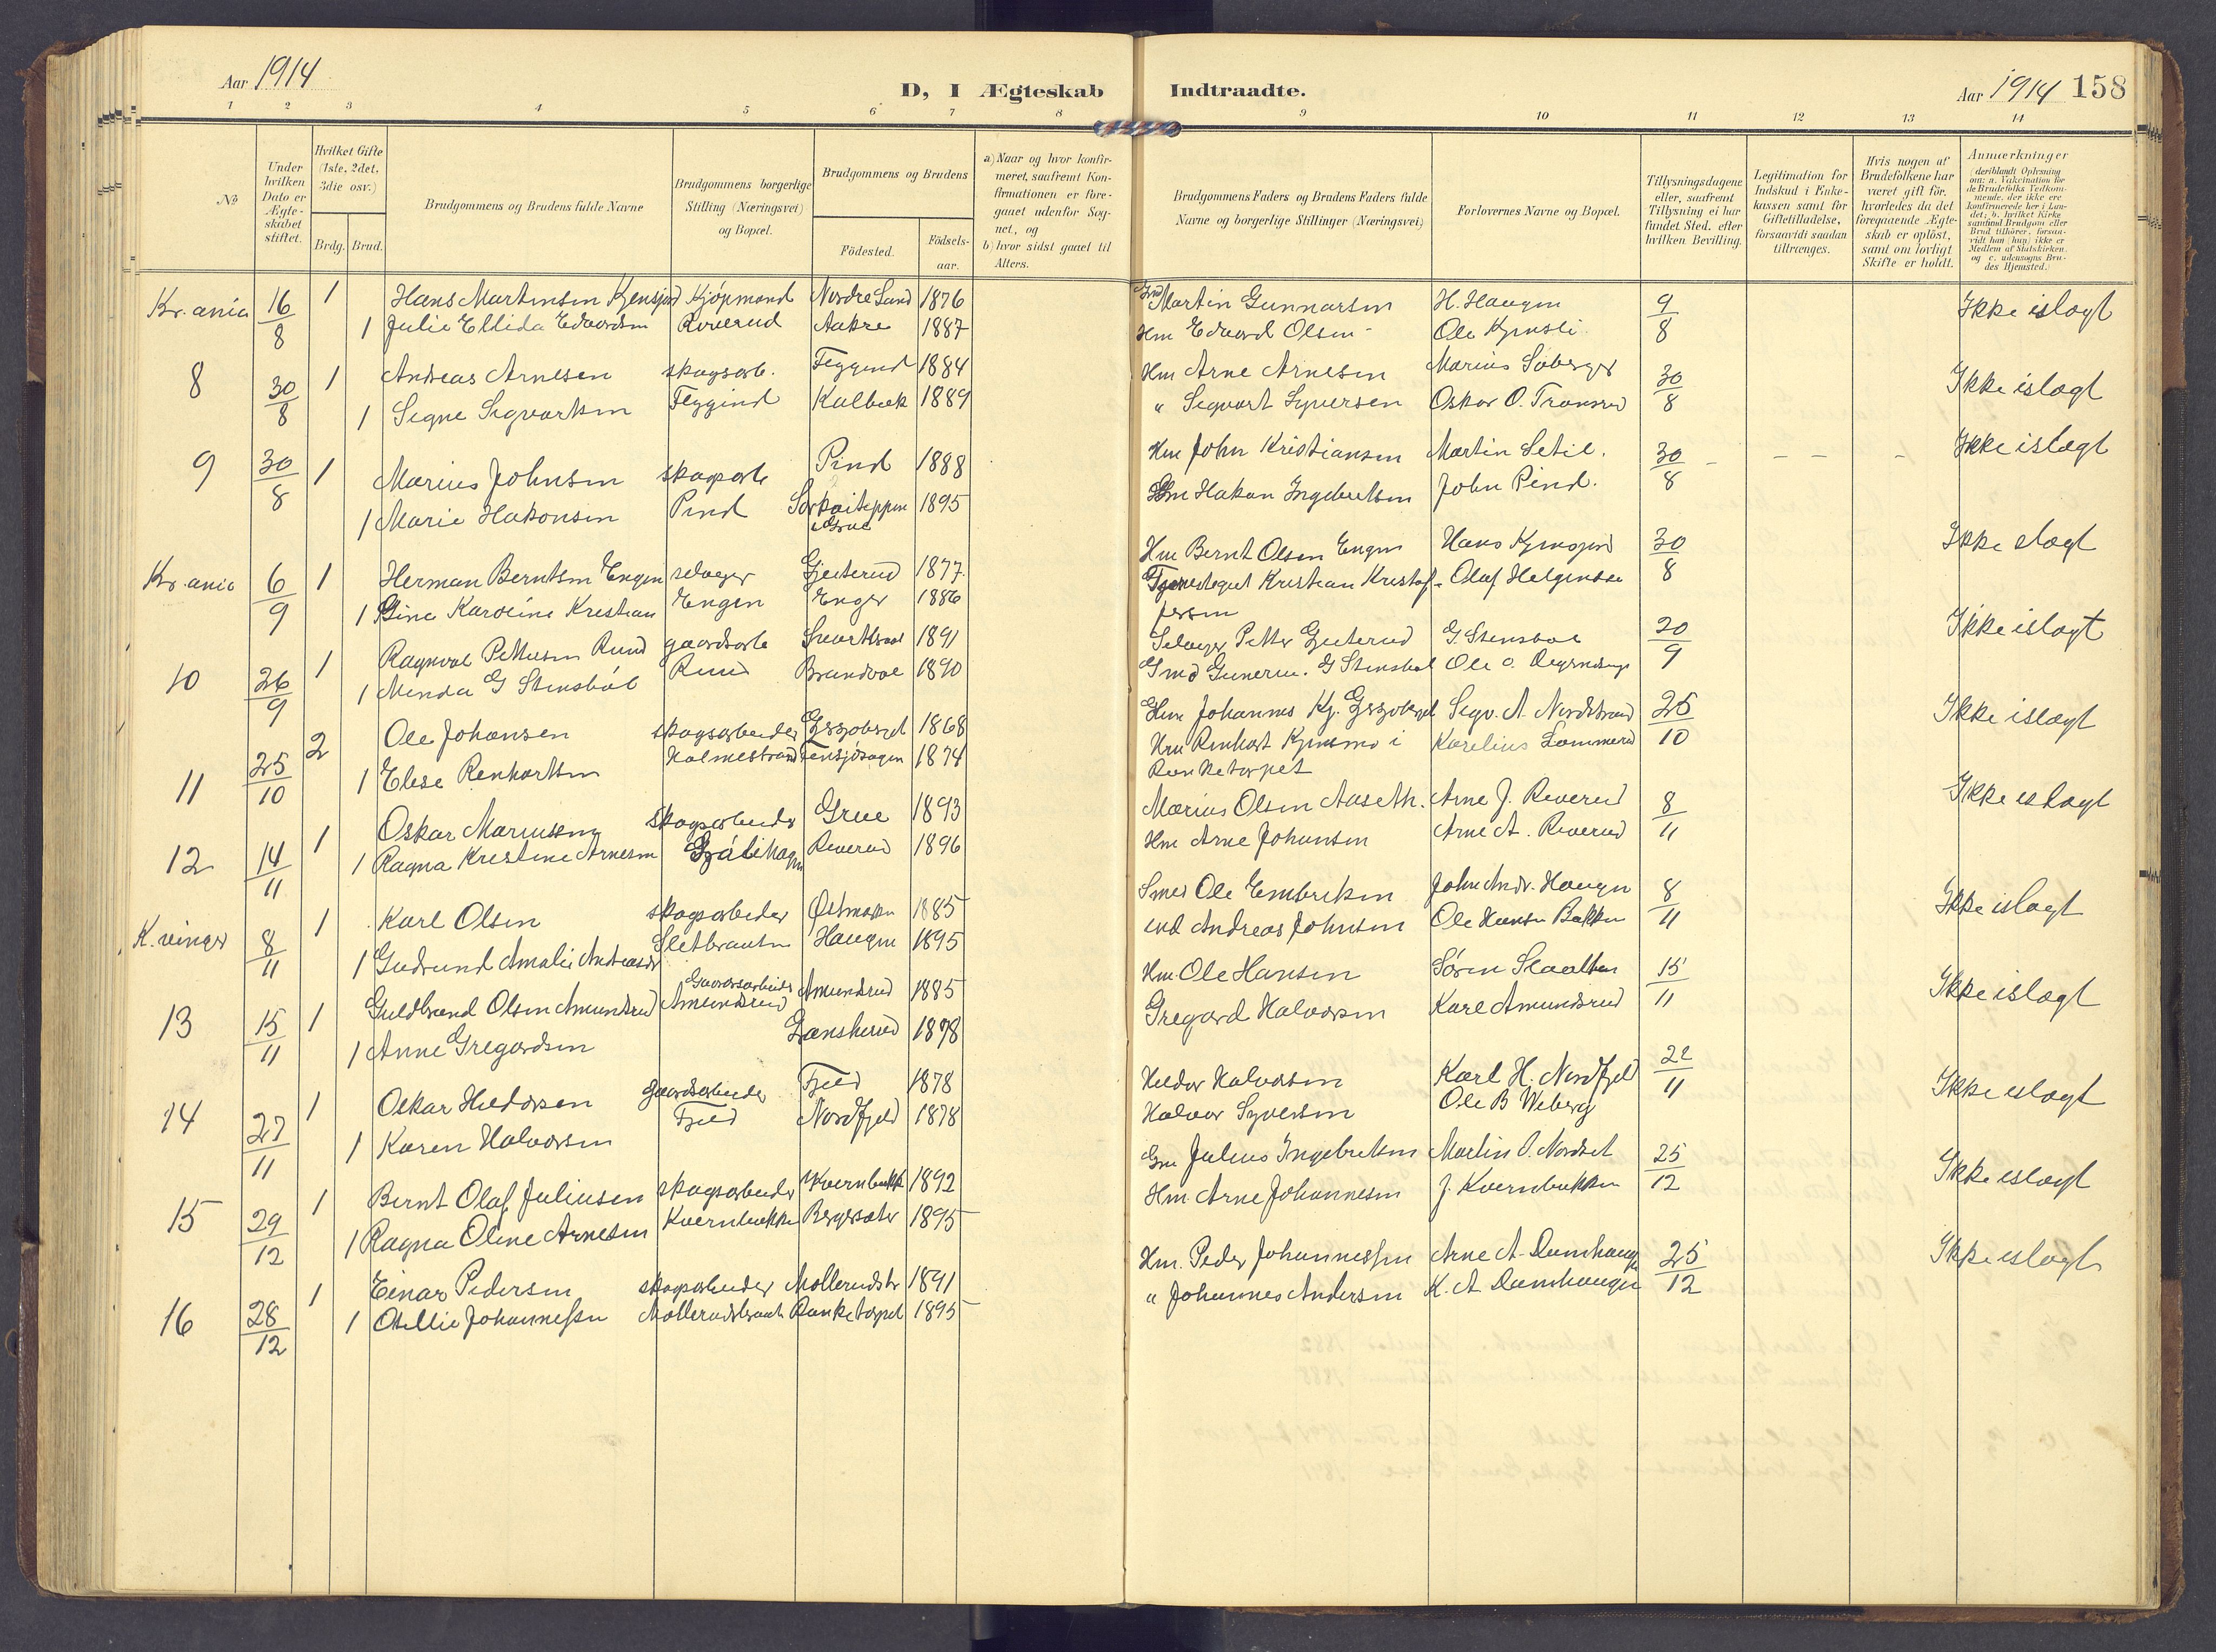 Aar 1914
D, I Ægteskab Indtraadte.
Aar 1914 158
1 2 3 4 5 6 7 8 9 10 11 12 13 14
№
Under hvilken Dato er Ægteskabet stiftet.
Hvilket Gifte (1ste, 2det, 3die osv.)
Brdg. Brud.
Brudgommens og Brudens fulde Navne
Brudgommens borgerlige Stilling (Næringsvei) og Bopæl.
Brudgommens og Brudens
Födested. Födsels-aar.
a) Naar og hvor konfirmeret, saafremt Konfirmationen er foregaaet udenfor Sognet, og
b) hvor sidst gaaet til Alters.
Brudgommens Faders og Brudens Faders fulde Navne og borgerlige Stillinger (Næringsvei)
Forlovernes Navne og Bopæl.
Tillysningsdagene eller, saafremt Tillysning ei har fundet Sted, efter hvilken Bevilling.
Legitimation for Indskud i Enkekassen samt for Giftetilladelse, forsaavidt saadan tiltrænges.
Hvis nogen af Brudefolkene har været gift för, hvorledes da det foregaaende Ægteskab er oplöst, samt om lovligt Skifte er holdt.
Anmærkninger (deriblandt Oplysning om: a. Vakcination for de Brudefolks Vedkommende, der ikke ere konfirmerede her i Landet; b. hvilket Kirkesamfund Brudgom eller Brud tilhörer, forsaavidt han (hun) ikke er Medlem af Statskirken, og c. udensogns Brudes Hjemsted.)
Kr.ania 16/8 1 Hans Martinsen Kjensjord Kjöpmand Nordre Sand 1876 Martin Gunnarsen H. Haugen 9/8 Ikke islagt
1 Julie Ellida Edvardsen Reverud Aakre 1887 Hm Edvard Olsen Ole Kjensli
8 30/8 1 Andreas Arnesen skogsarb. Feggind 1884 Hm Arne Arnesen Marius Soberger 30/8 Ikke islagt
1 Signe Sigvartsen Feggind Kalbæk 1889 " Sigvart Syversen Oskar O.
9 30/8 1 Marius Johnsen skogsarb Pind 1888 Hm John Kristiansen Martin Setil. 30/8 - - - - Ikke islagt
1 Marie Hakonsen Pind i Grue 1895 Hm Hakon Ingebretsen John Pind.
Kr.ania 6/9 1 Herman Berntsen Engen selveger Gjeterud 1877 Hm Bernt Olsen Engen Hans 30/8 Ikke islagt
1 Gina Karoline Kristian Engen Enger 1886 Kristian Kristof- Olaf
fersen
10 26/9 1 Ragnval Pettersen Rund gaardsarb 1891 Selveger Petter Gjeterud G. Stensbøl 20/9 Ikke islagt
1 Minda G Stensbøl Rund Brandvol 1890 G Stensbøl Ole O.
11 25/10 2 Ole Johansen skogsarbeider 1868 Hm Johannes Kj. Sigv. A. Nordstrand 25/10 Ikke islagt
1 Elise Renhartsen Holmestrand Tensjösagen 1874 Hm Renhart Kjensmo i Karelius Lammerud
Ranketorpet
12 14/11 1 Oskar Mariussen skogsarbeider Grue 1893 Marius Olsen Aaseth. Arne J. Reverud 8/11 Ikke islagt
1 Ragna Kristine Arnesen Reverud 1896 Hm Arne Johansen Arne A. Reverud
K.vinger 8/11 1 Karl Olsen skogsarbeider Østmarken 1885 Smed Ole Embretsen John Andr. Haugen 8/11 Ikke islagt
1 Gudrund Amalie Andreasdr Sletbraaten Haugen 1895 Andreas Johnsen Ole Hansen Bakken
13 15/11 1 Guldbrand Olsen Amundrud Gaardsarbeider Amundrud Amundrud 1885 Hm Ole Hansen Søren Slaatten 15/11 Ikke islagt
1 Anne Gregardsen Lanskerud 1878 Gregard Halvorsen Karl Amundsrud
14 27/11 1 Oskar Hildorsen gaardsarbeider Fjeld 1878 Hildor Halvorsen Karl H. Nordfjeld 22/11 Ikke islagt
1 Karen Halvorsen Fjeld Nordfjeld 1878 Halvor Syversen Ole B Weberg
15 29/12 1 Bernt Olaf Juliusen skogsarbeider Kvernbakk 1892 Gm Julius Ingebretsen Martin O. Nordset 25/12 Ikke islagt
1 Ragna Oline Arnesen Kvernbakken Bergersæter 1895 Hm Arne Johannesen J. Kvernbakken
16 28/12 1 Einar Pedersen skogsarbeider Mollerudsbr 1891 Hm. Peder Johannessen Arne A. Damhaugen 25/12 Ikke islagt
1 Otellie Johannessen Mollerudsbraat Ranketorpet 1895 " Johannes Andersen K. A Damhaugen